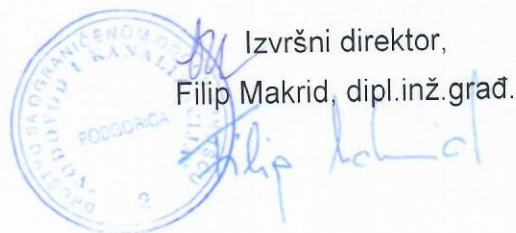 Izvršni direktor,
Filip Makrid, dipl.inž.građ.
DRUŠTVO SA OGRANIČENOM
"VODOVOD I KANALIZACIJA"
PODGORICA
2
Filip Makrid